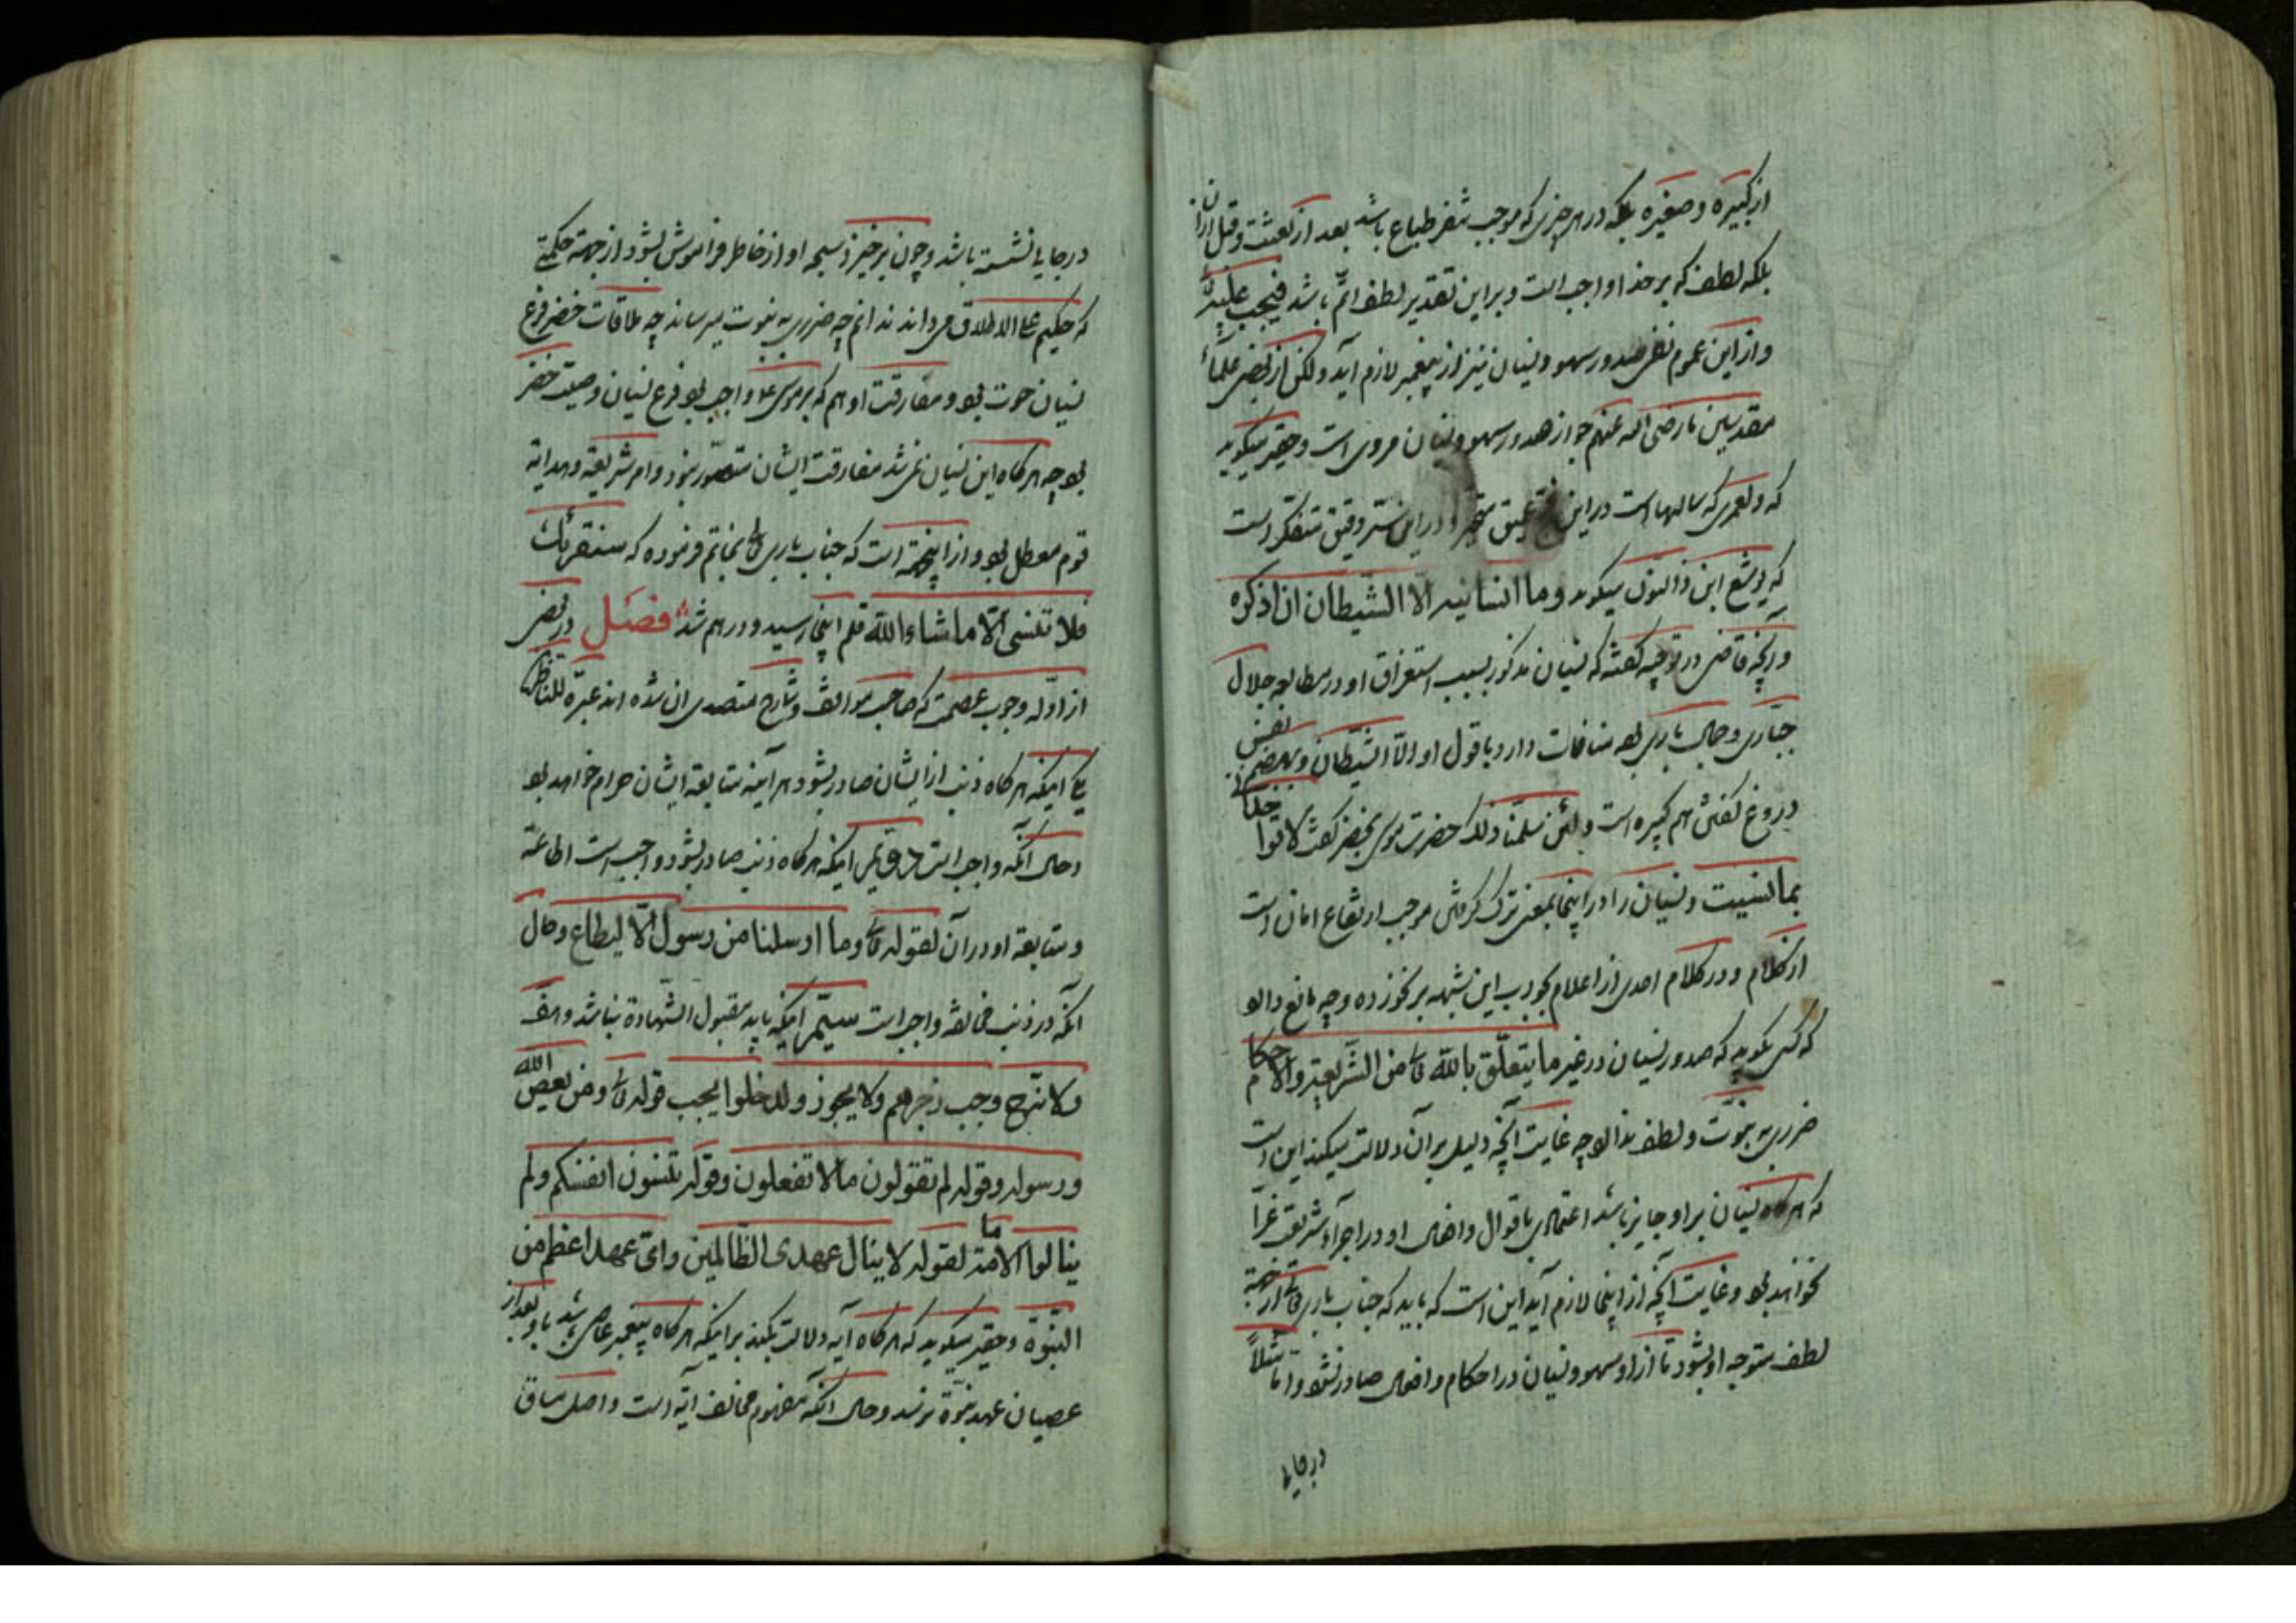 از کبیره و صغیره بلکه در هر چیزی که موجب تنفر طباع باشد بعد از بعثت و قبل از ان
بلکه لطف که بر خدا واجب است و بر این تقدیر لطف اتمّ باشد فیجب علیه
و از این عموم نفی صدور سهو و نسیان نیز از پیغمبر لازم آید و لکن از بعضی علماء
مقدسین ما رضی الله عنهم جواز صدور سهو و نسیان مروی است و حقیر میگوید
که و لعمری که سالهاست در این عمیق متحیر و در این ستر دقیق متفکر است
که یوشع ابن ذا النون میگوید و ما انسانیه الّا الشّیطان ان اذکره
و آنچه قاضی در توجیه گفته که نسیان مذکور بسبب استغراق او در مطالعه جلال
جبّاری و جمال باری بود منافات دارد با قول او الّا الشیطان و بعضی
دروغ گفتن هم کبیره است و لئن سلّمنا ذلک حضرت موسی بخضر گفت لا تؤاخذنی
بما نسیت و نسیان را در اینجا بمعنی ترک گرفتن موجب ارتفاع امان است
از کلام و در کلام احدی از اعلام جواب این شبهه بر نخورده و چه مانع دارد
که کسی بگوید که صدور نسیان در غیر ما یتعلّق بالله تع من الشّریعة و الاحکام
ضرری به نبوّت و لطف ندارد چه غایت آنچه دلیل بر آن دلالت میکند این است
که هر گاه نسیان بر او جایز باشد اعتمادی باقوال و افعال او در اجراء شریعت غرّا
نخواهد بود و غایت آنچه از اینجا لازم آید این است که باید که جناب باری تع از جهة
لطف متوجه او بشود تا از او سهو و نسیان در احکام و افعال صادر نشود و امّا مثلاً
در جایی
در جایی نشسته باشد و چون برخیزد سبحه او از خاطر فراموش بشود از جهة حکمتی
که حکیم علی الاطلاق میداند ندانم چه ضرری به نبوت میرساند چه ملاقات خضر فرع
نسیان حوت بود و مفارقت او هم که بر موسی ع واجب بود فرع نسیان وصیت خضر
بود چه هر گاه این نسیان نمیشد مفارقت ایشان متصوّر نبود و امر شریعة و هدایة
قوم معطل بود و از اینجهة است که جناب باری تع بخاتم فرموده که سنقرئک
فلا تنسی الّا ما شاء الله قلم اینجا رسید و درهم شد فصل در بعضی
از ادّله وجوب عصمت که صاحب مواقف و شارح متصدی ان شده اند عبرة للناظر
یکی اینکه هر گاه ذنب از ایشان صادر بشود هر آینه متابعة ایشان حرام خواهد بود
و حال آنکه واجب است دوّیم اینکه هر گاه ذنب صادر بشود واجب است اطاعة
و متابعة او در آن لقوله تع و ما ارسلنا من رسول الّا لیطاع و حال
آنکه در ذنب مخالفة واجب است سیّم اینکه باید مقبول الشّهادة نباشد
و لا نزاح وجب زجرهم و لا یجوز و لدخلوا یجب قوله تع و من یعص الله
و رسوله و قوله لم تقولون ما لا تفعلون و قوله تنسون انفسکم و لم
ینالوا الامة لقوله لا ینال عهدی الظّالمین و ایّ عهد اعظم من
النبوّة و حقیر میگوید که هر گاه آیه دلالت بکند بر اینکه هر گاه پیغمبر عاصی باشد باو بعد از
عصیان عهد نبوّة نرسد و حال آنکه مفهوم مخالف آیه است و اصل ساق